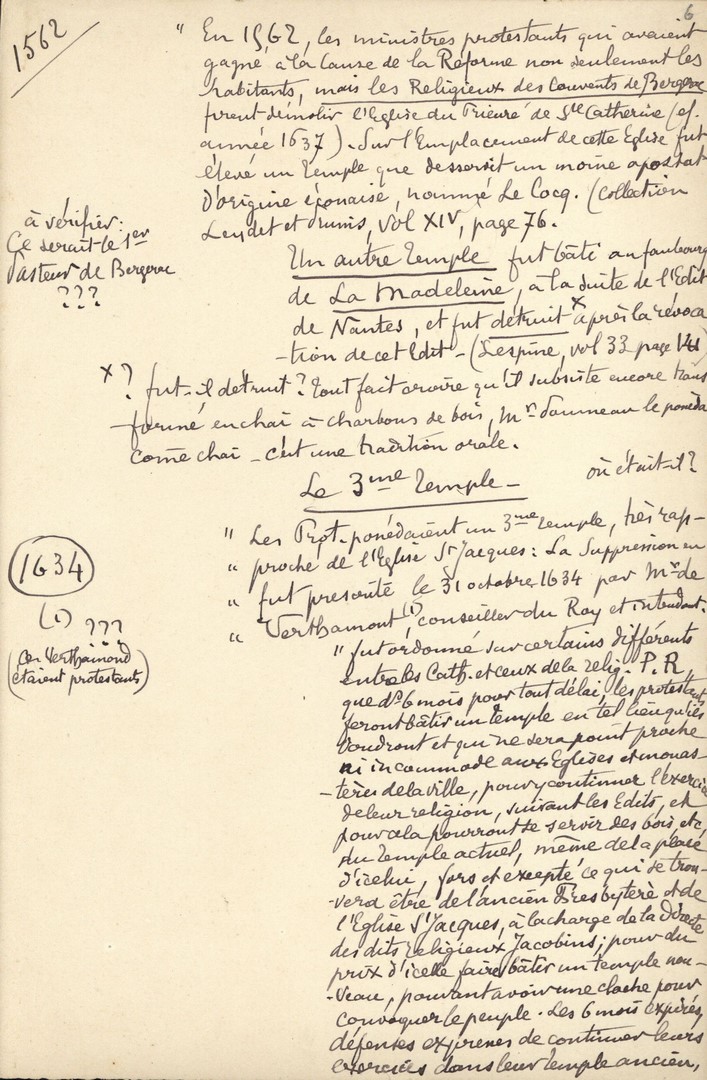 6
1562
" En 1562, les ministres protestants qui avaient
gagné à la Cause de la Réforme non seulement les
habitants, mais les Religieux des Couvents de Bergerac
firent démolir l'Eglise du Prieuré de Ste Catherine (cf.
année 1637). Sur l'Emplacement de cette Eglise fut
élevé un Temple que desservit un moine apostat
d'origine lyonaise, nommé Le Cocq. (Collection
Leydet et Prunis, Vol XIV, page 76.
à vérifier:
Ce serait le 1er
Pasteur de Bergerac
???
Un autre Temple fut bâti au faubourg
de La Madeleine, à la suite de l'Edit
de Nantes, et fut détruit x après la révoca
-tion de cet Edit - (Lespine, vol 33 page 141)
x? fut-il détruit? Tout fait croire qu'il subsiste encore trans
formé en chai à charbons de bois, Mr Dauneau le posséda
come chai - c'est une tradition orale.
Le 3me Temple - où était-il?
1634
" Les Prot. possédaient un 3me Temple, très rap-
" proché de l'Eglise St Jacques: La Suppression en
" fut prescrite le 31 octobre 1634 par Mr de
" Verthamont (1), conseiller du Roy et intendant.
(1) ???
(ces Verthamond
étaient protestants)
" fut ordonné sur certains différents
entre les Cath. et ceux de la relig. P. R,
que ds 6 mois pour tout délai, les protestants
feront bâtir un temple en tel lieu qu'ils
voudront et qui ne sera point proche
ni incommode aux Eglises et monas-
-tères de la ville, pour y continuer l'exercice
de leur religion, suivant les Edits, et
pour cela pourront se servir des bois, etc,
du Temple actuel, même de la place
d'icelui, fors et excepté ce qui se trou-
-vera être de l'ancien Presbytère et de
l'Eglise St Jacques, à la charge de la Directe
des dits religieux Jacobins; pour du
prix d'icelle faire bâtir un temple nou-
-veau, pouvant avoir une cloche pour
convoquer le peuple. Les 6 mois expirés,
défenses expresses de continuer leurs
exercices dans leur temple ancien,